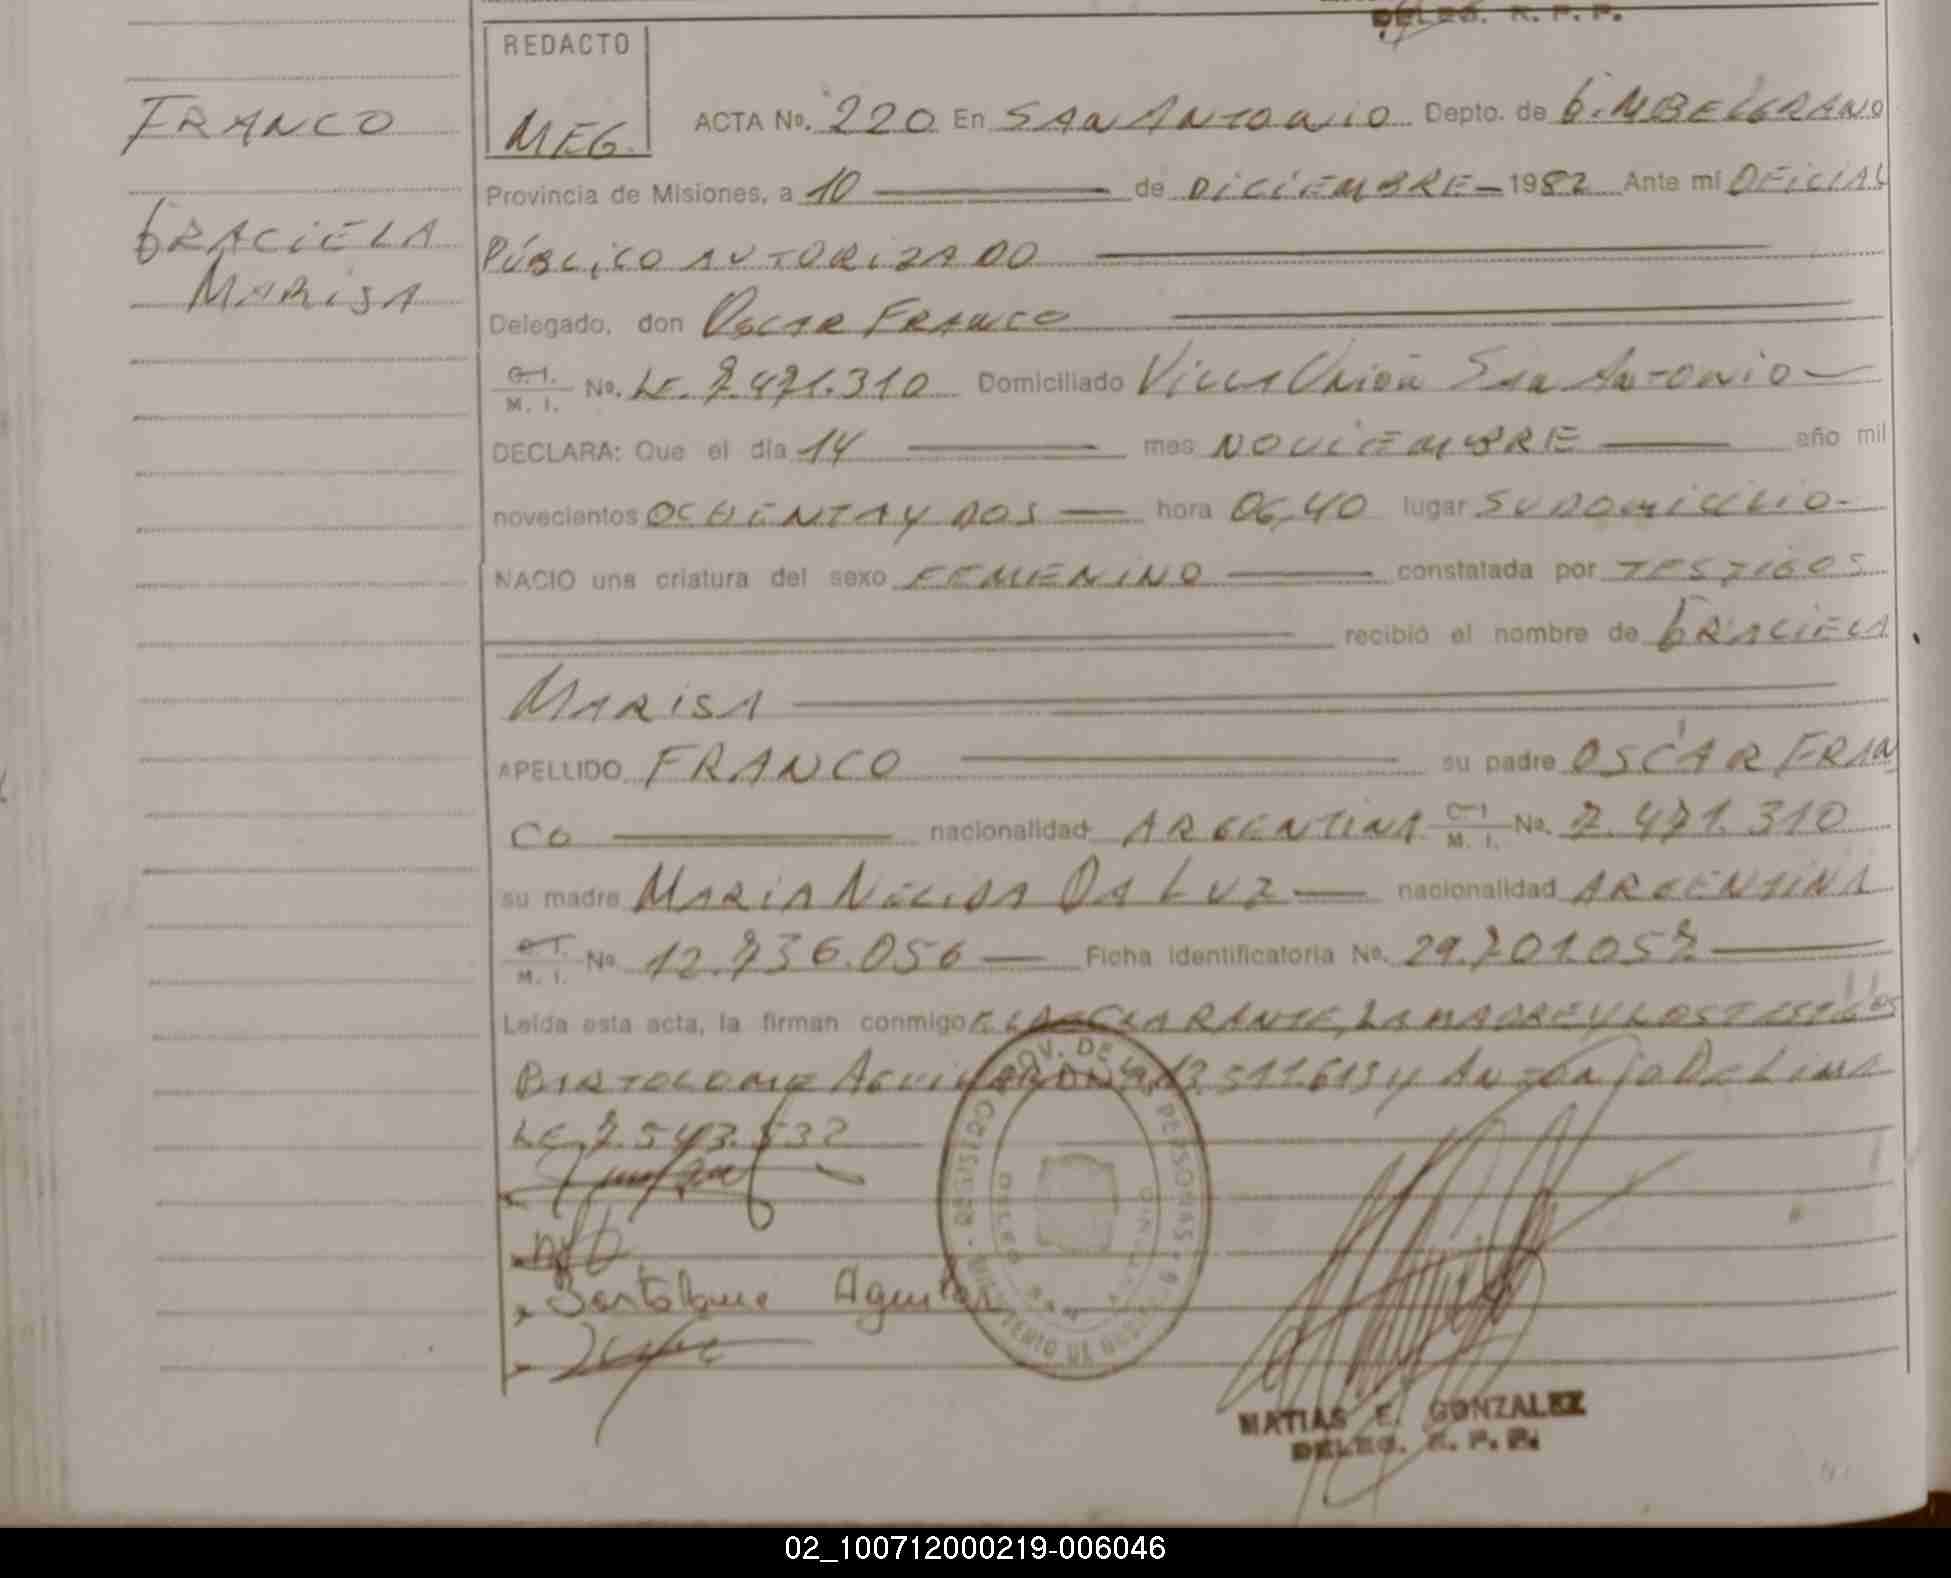 DELEG. R. P. P.
REDACTO
MEG.
FRANCO
GRACIELA
MARISA
ACTA No. 220 En SAN ANTONIO Depto. de G. M BELGRANO
Provincia de Misiones, a 10 de DICIEMBRE 1982 Ante mi OFICIAL
PÚBLICO AUTORIZADO
Delegado, don OSCAR FRANCO
C. I. M. I. No. LE. 7.471.310 Domiciliado Villa Unión San Antonio
DECLARA: Que el día 14 mes NOVIEMBRE año mil
novecientos OCHENTA Y DOS hora 06,40 lugar SU DOMICILIO
NACIO una criatura del sexo FEMENINO constatada por TESTIGOS
recibió el nombre de GRACIELA
MARISA
APELLIDO FRANCO su padre OSCAR FRAN
CO nacionalidad ARGENTINA C. I. M. I. No. 7.471.310
su madre MARIA NELIDA DA LUZ nacionalidad ARGENTINA
C. I. M. I. No. 12.736.056 Ficha identificatoria No. 29.701.057
Leída esta acta, la firman conmigo EL DECLARANTE, LA MADRE Y LOS TESTIGOS
BARTOLOME AGUILAR 13.511.613 y ANTONIO DE LIMA
LE. 7.543.532
Bartolome Aguilar
REGISTRO PROV. DE LAS PERSONAS
DELEG. SAN ANTONIO
MATIAS E. GONZALEZ
DELEG. R. P. P.
02_100712000219-006046